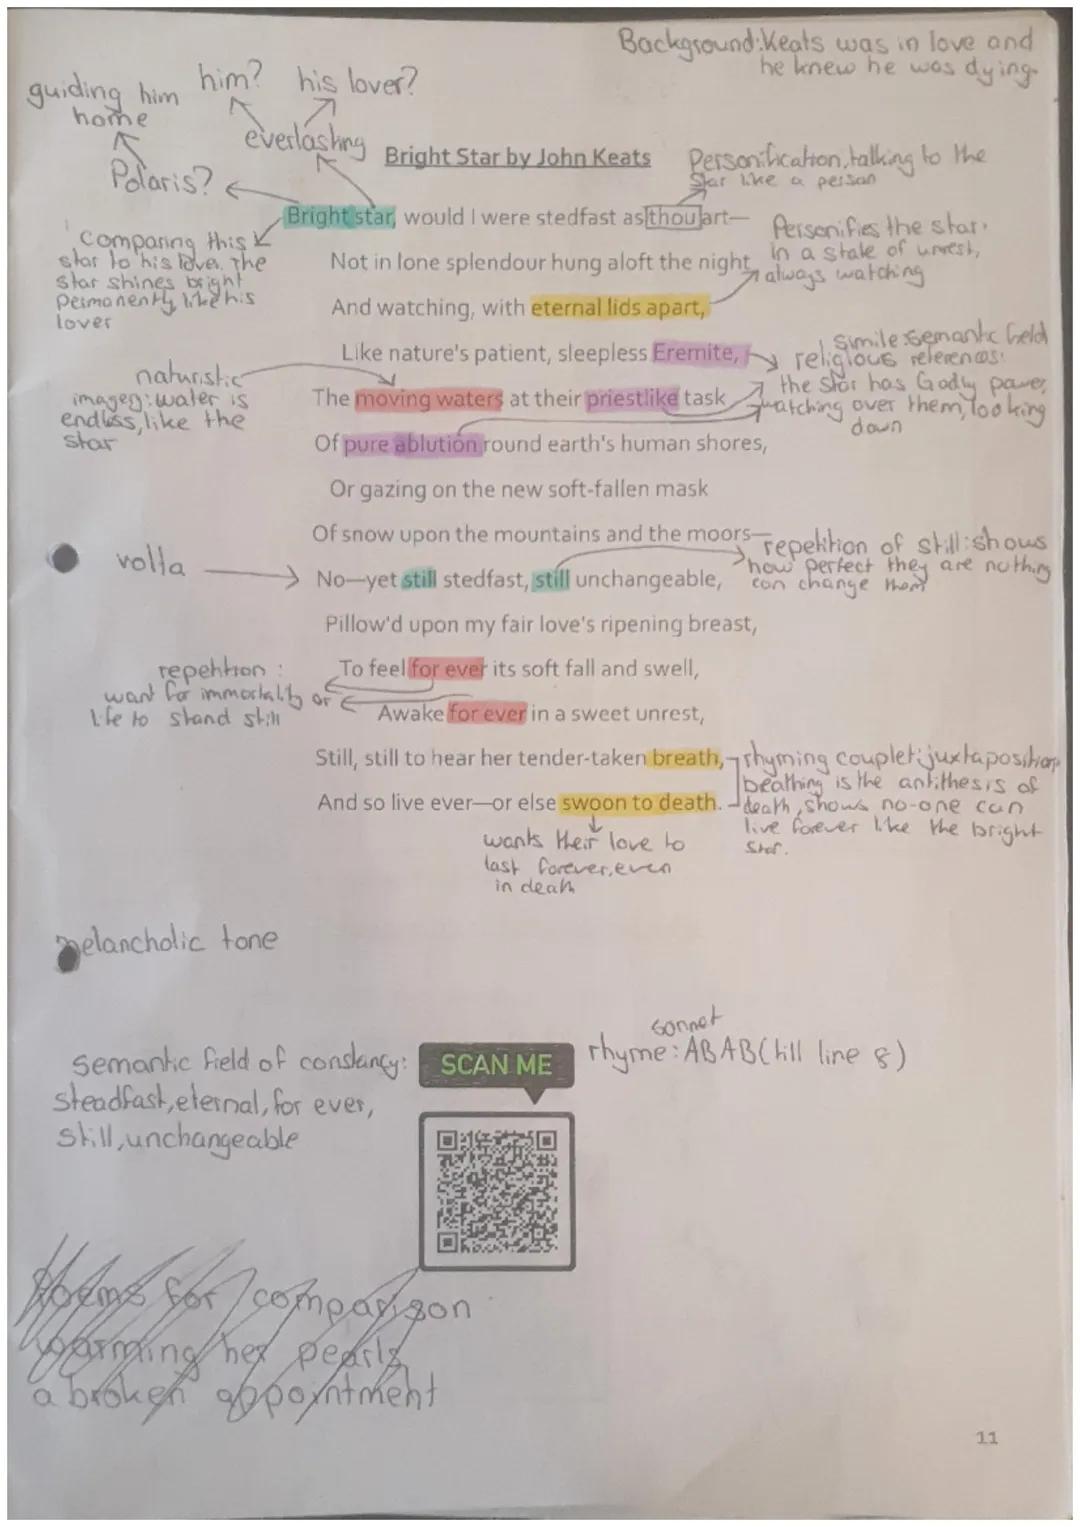 Background: Keats was in love and
he knew he was dying.
guiding him
home
him?
his lover?
everlasting
Polaris?
Bright Star by John Keats
Personification, talking to the
star like a person
Bright star, would I were stedfast as thou art—
Comparing this
star to his lover. The
star shines bright
permanently like his
lover
Personifies the star.
in a state of unrest,
always watching
Not in lone splendour hung aloft the night
And watching, with eternal lids apart,
Like nature's patient, sleepless Eremite,
simile: semantic field
religious references:
the star has Godly power,
watching over them, looking
down
naturistic
imagery: water is
endless, like the
star
The moving waters at their priestlike task
Of pure ablution round earth's human shores,
Or gazing on the new soft-fallen mask
Of snow upon the mountains and the moors—
repetition of still: shows
how perfect they are nothing
can change them
volta
No—yet still stedfast, still unchangeable,
Pillow'd upon my fair love's ripening breast,
To feel for ever its soft fall and swell,
repetition:
want for immortality or
life to stand still
Awake for ever in a sweet unrest,
Still, still to hear her tender-taken breath,
And so live ever—or else swoon to death.
rhyming couplet: juxtaposition,
beathing is the antithesis of
death, shows no-one can
live forever like the bright
star.
wants their love to
last forever, even
in death
melancholic tone
sonnet
rhyme: ABAB (till line 8)
Semantic field of constancy:
steadfast, eternal, for ever,
still, unchangeable
SCAN ME
Poems for comparison
warming her pearls
a broken appointment
11